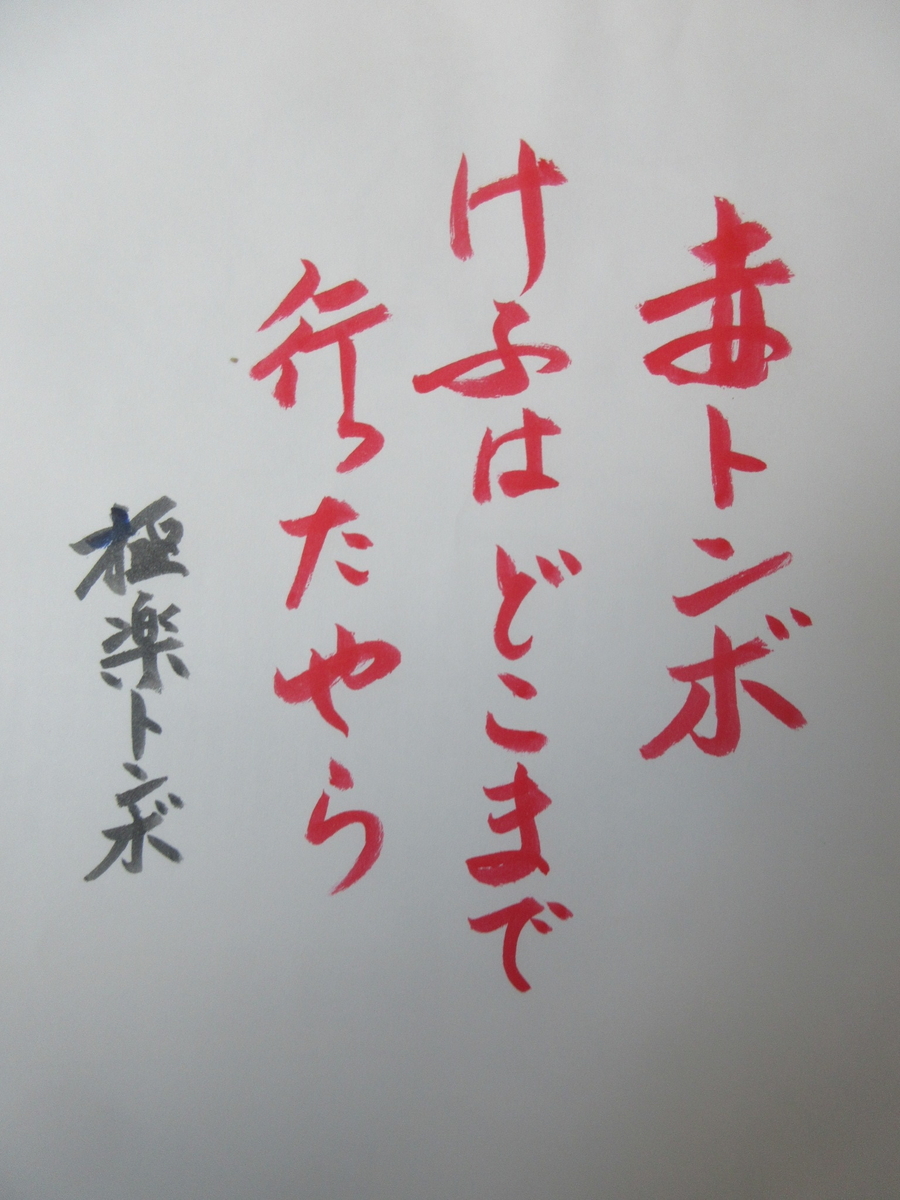 赤トンボ
けふはどこまで
行ったやら
極楽トンボ